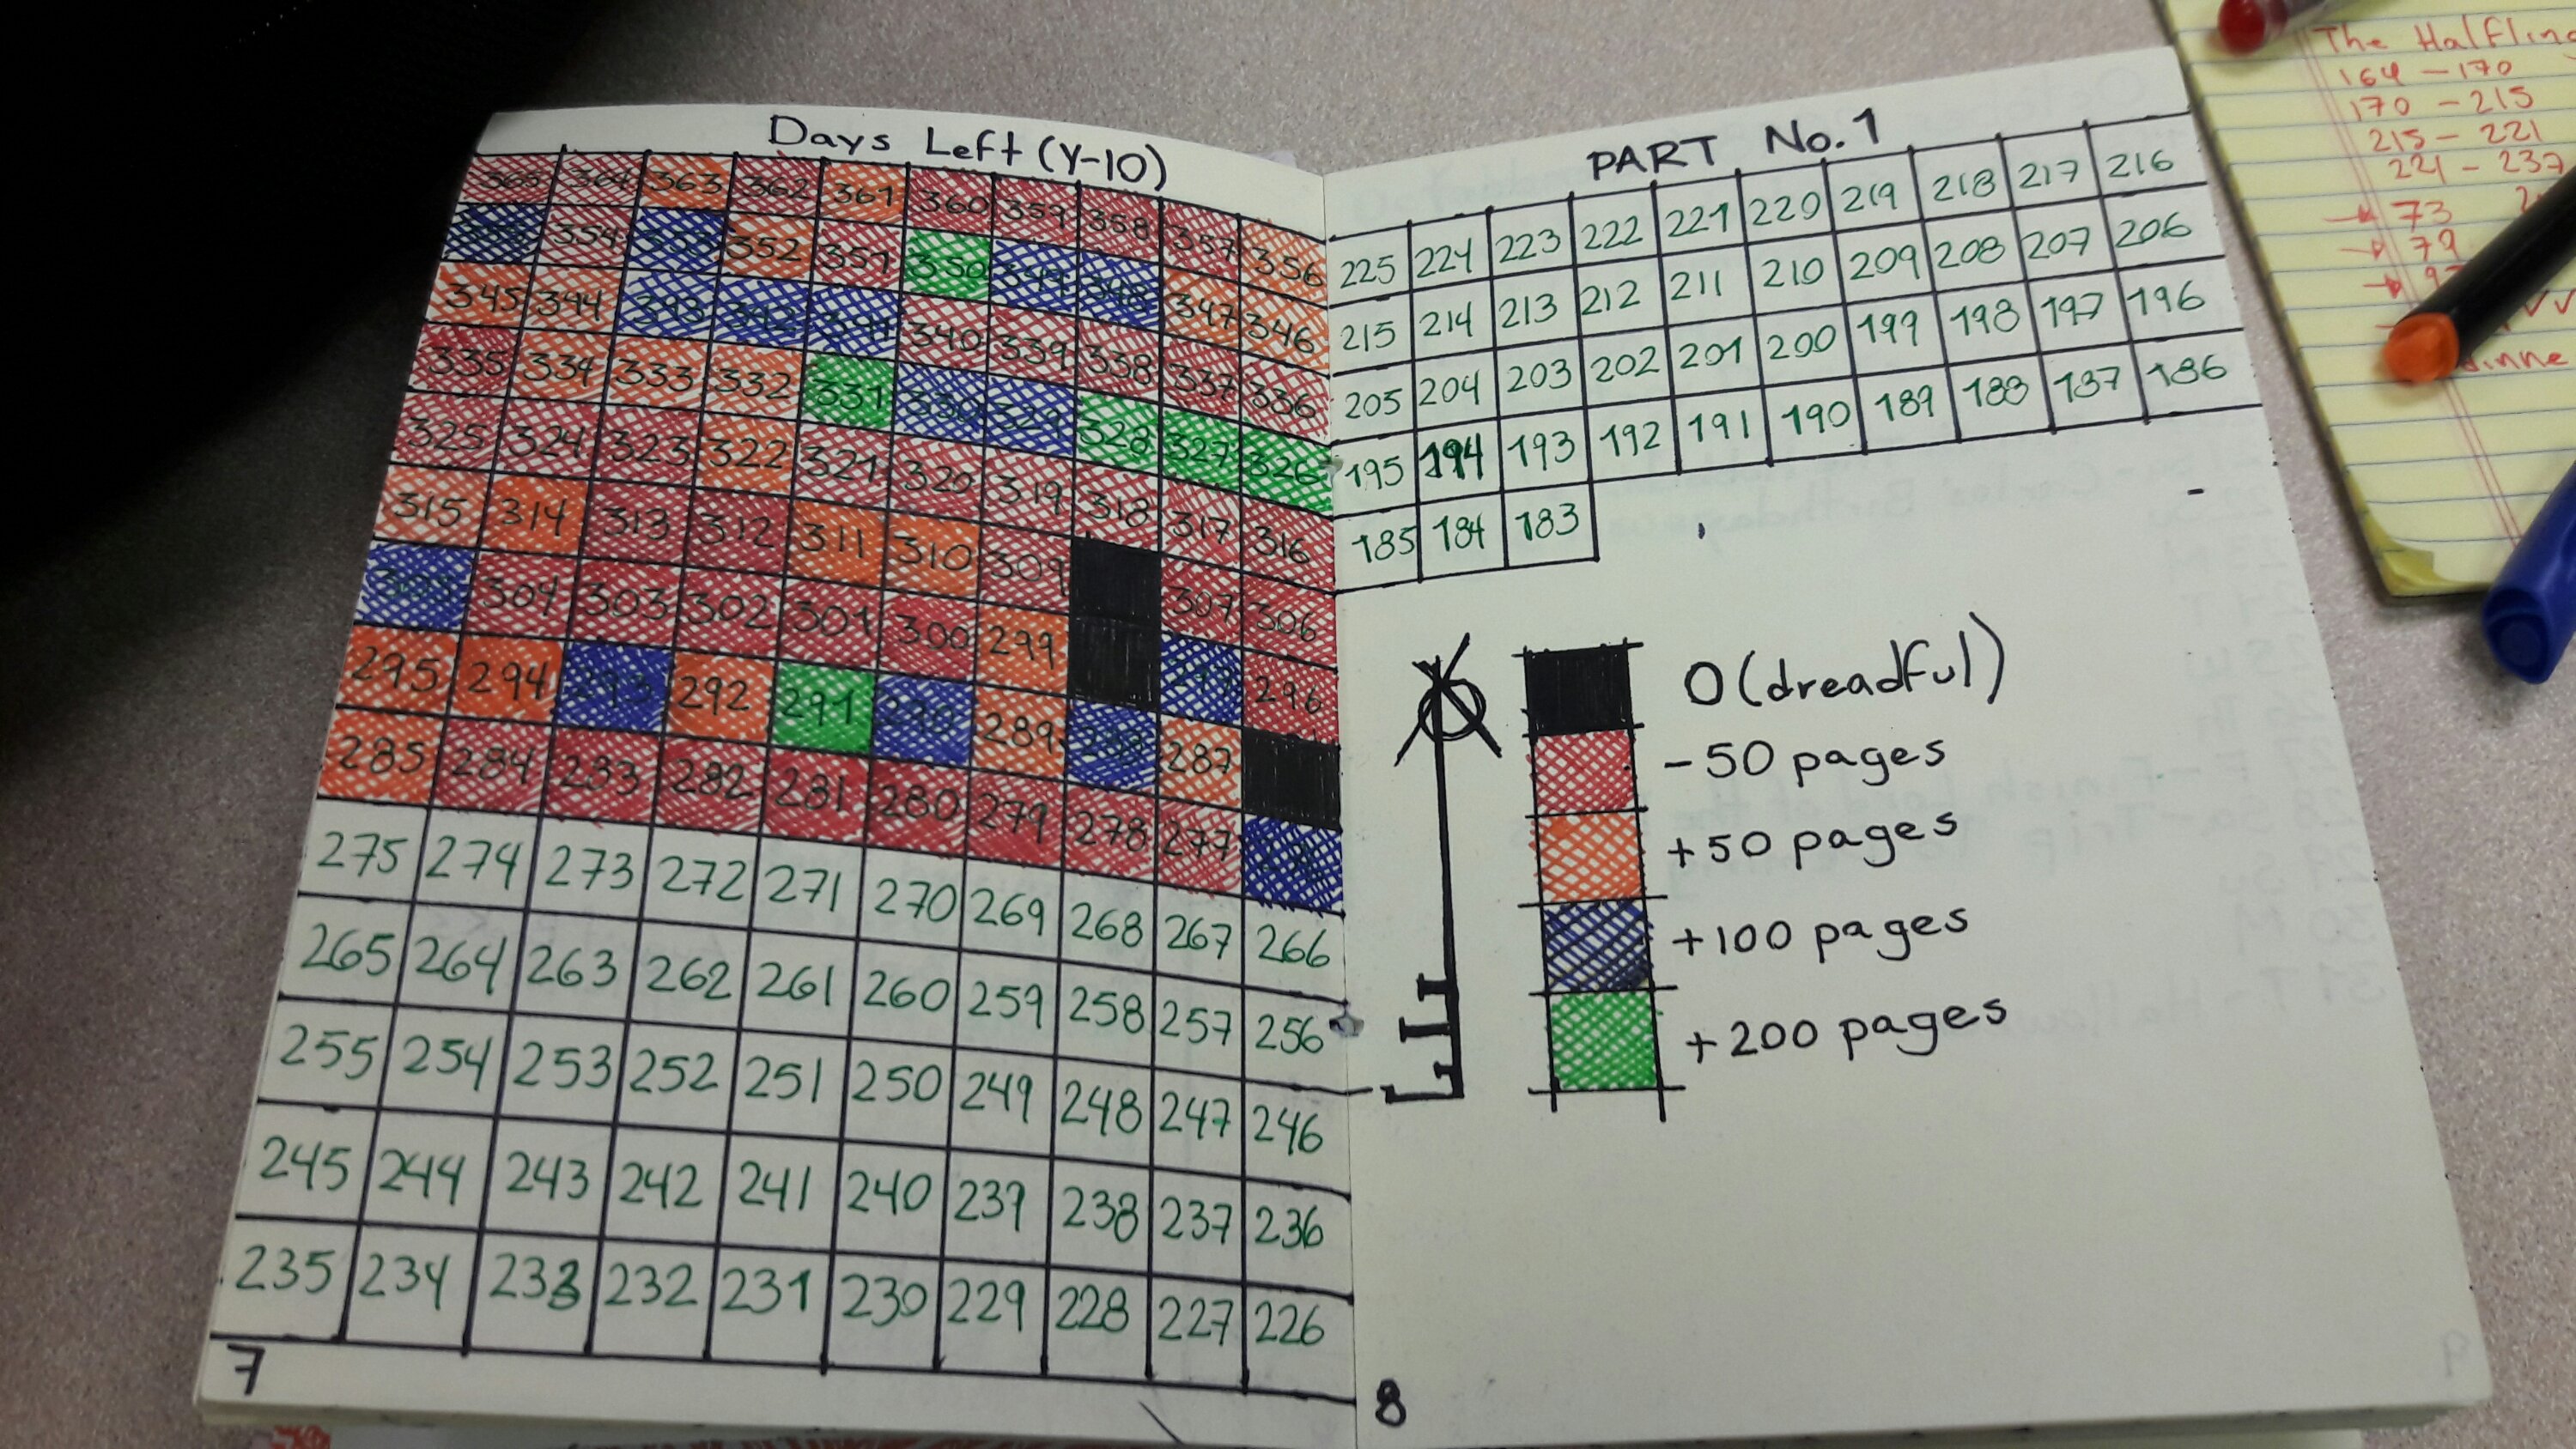 Days Left (Y-10)
365 364 363 362 361 360 359 358 357 356
355 354 353 352 351 350 349 348 347 346
345 344 343 342 341 340 339 338 337 336
335 334 333 332 331 330 329 328 327 326
325 324 323 322 321 320 319 318 317 316
315 314 313 312 311 310 309 307 306
305 304 303 302 301 300 299 297 296
295 294 293 292 291 290 289 288 287
285 284 283 282 281 280 279 278 277
275 274 273 272 271 270 269 268 267 266
265 264 263 262 261 260 259 258 257 256
255 254 253 252 251 250 249 248 247 246
245 244 243 242 241 240 239 238 237 236
235 234 233 232 231 230 229 228 227 226
7
PART No. 1
225 224 223 222 221 220 219 218 217 216
215 214 213 212 211 210 209 208 207 206
205 204 203 202 201 200 199 198 197 196
195 194 193 192 191 190 189 188 187 186
185 184 183
0 (dreadful)
- 50 pages
+ 50 pages
+ 100 pages
+ 200 pages
8
The Halfling
164 - 170
170 - 215
215 - 221
221 - 237
→ 73
→ 79